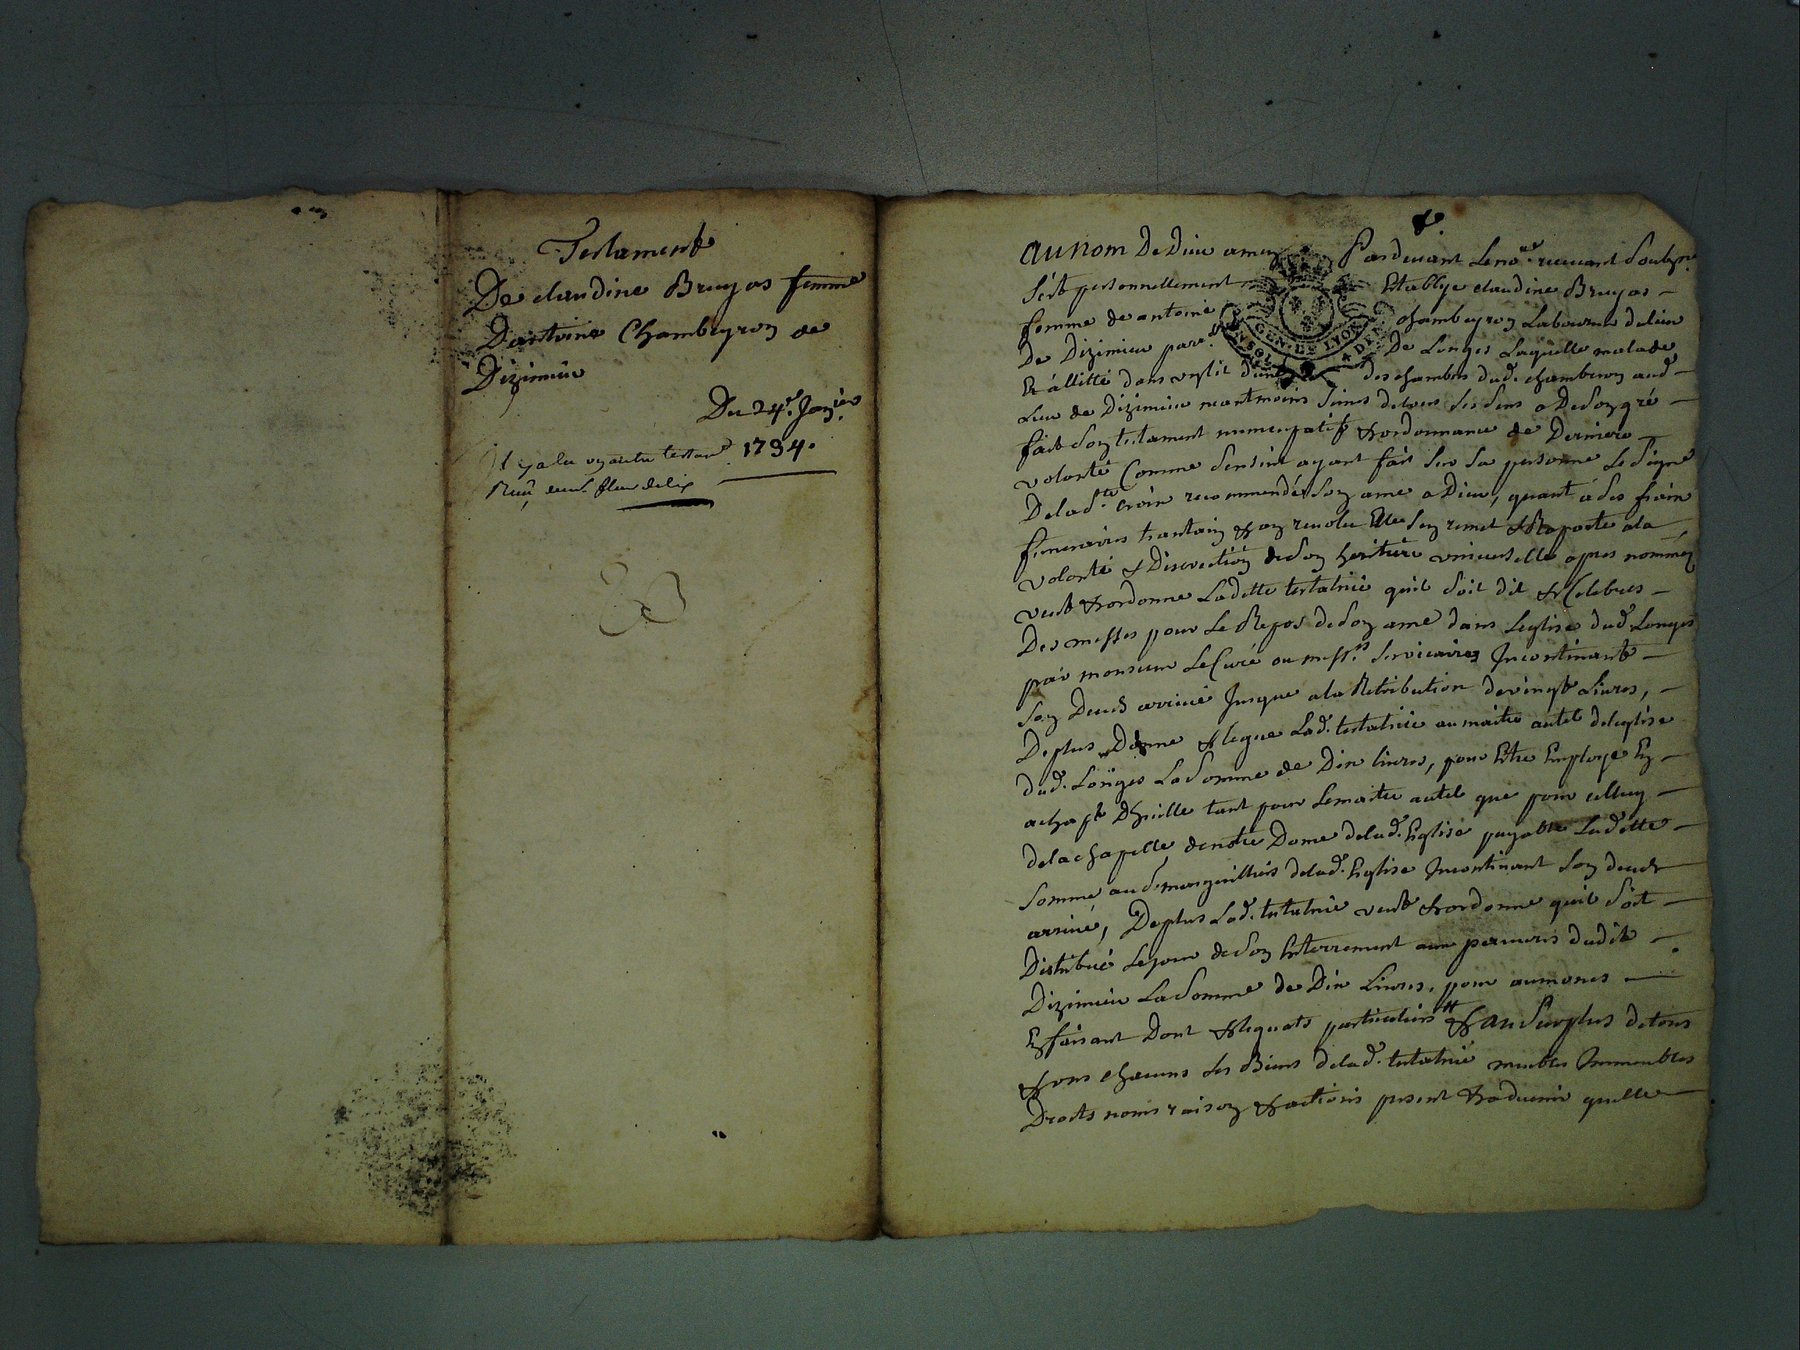 Testament
De claudine Bruyas femme
D'antoine Chambeyron de
Dizimieu
Du 24e. Janier.
1734.
Il y a eu un autre testam
fleur de lix
au nom De Dieu amen Pardevant Le nore. recevant Soubsne.
S'est personnellement Establye claudine Bruyas
femme de antoine chambeyron Laboureur du lieu
De Dizimieu parr. De Longes Laquelle malade
Et allitté dans un lit dune des chambres dud. chamberon aud.
Lieu de Dizimieu neantmoins saines de tous ses sens a De son gré
fait Son testament nuncupatif & ordonnance de Derniere
volonté Comme s'ensuit ayant fait sur sa personne Le Signe
De la Ste. croix recommandé Son ame a Dieu, quant a Ses fraix
funeraires trantain & an revolu Elle s'en remet & Raporte a la
volonté & Discrection de Son heritiere universelle apres nommée
veut & ordonne Ladette testatrice quil Soit dit & Celebres
Des messes pour Le Repos de Son ame dans Leglise dud. Longes
par monsieur Le Curé ou messrs. Ses vicaires Incontinant
Son Deces arrivé Jusque a la Retribution de vingt Livres,
De plus Donne & legue Lad. testatrice au maitre autel de leglise
dud. Longes La Somme de Dix livres, pour Etre Employe En
achapt D'huille tant pour Le maitre autel que pour celluy
de la chapelle de notre Dame de lad. Eglise payable Ladette
Somme au Sr. marguilliers de lad. Eglise Incontinant Son deces
arrivé, De plus Lad. testatrice veut & ordonne quil Soit
Distribué Le jour de Son Enterrement aux pauvres dudit
Dizimieu La Somme de Dix Livres, pour aumones
En faisant Dont & legats particuliers & au Surplus de tous
& uns chacuns Les Biens de lad. testatrice meubles Immeubles
Droits noms raison & actions present & advenir quelle